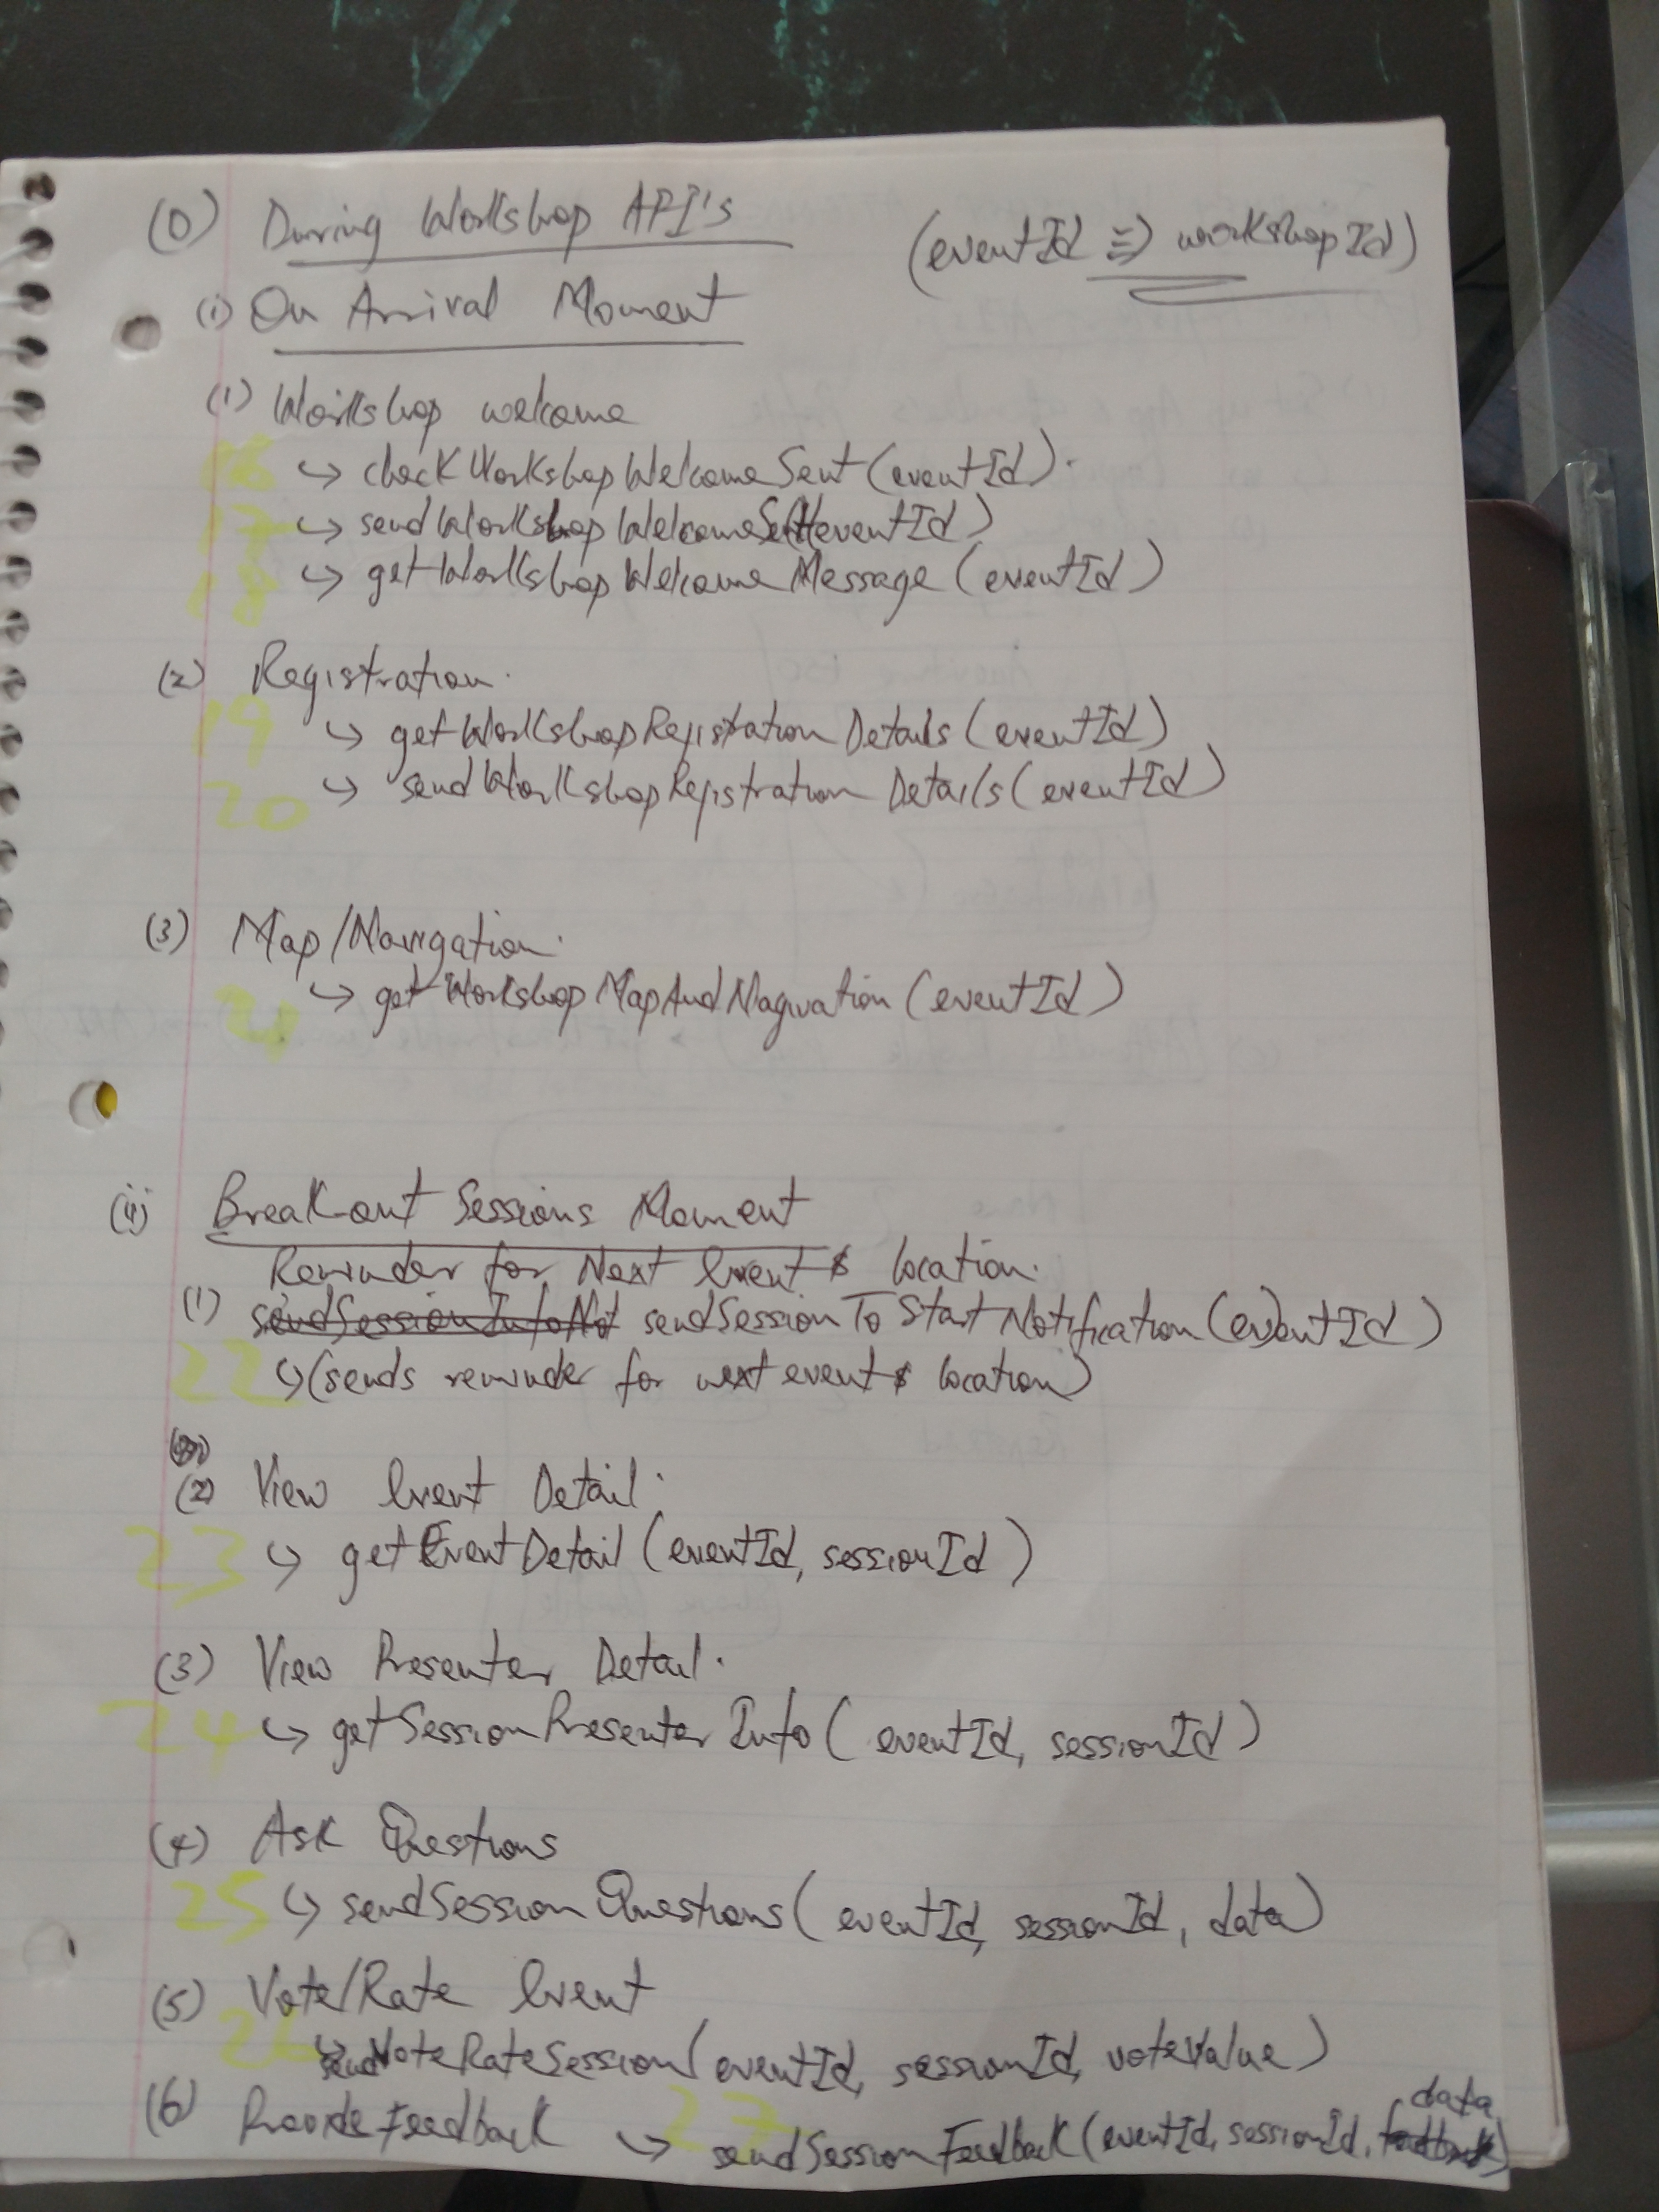 (0) During Workshop API's
(eventId ≡) workshopId)
(i) On Arrival Moment
(1) Workshop welcome
16 ↳ checkWorkshopWelcomeSent(eventId).
17 ↳ sendWorkshopWelcome(eventId)
18 ↳ getWorkshopWelcomeMessage(eventId)
(2) Registration.
19 ↳ getWorkshopRegistrationDetails(eventId)
20 ↳ sendWorkshopRegistrationDetails(eventId)
(3) Map/Navigation.
21 ↳ getWorkshopMapAndNagivation(eventId)
(ii) Breakout Sessions Moment
Reminder for Next Event & location.
(1) sendSessionInfoNot sendSessionToStartNotification(eventId)
22 ↳ (sends reminder for next event & location)
(2) View Event Detail.
23 ↳ getEventDetail(eventId, sessionId)
(3) View Presenter Detail.
24 ↳ getSessionPresenterInfo(eventId, sessionId)
(4) Ask Questions
25 ↳ sendSessionQuestions(eventId, sessionId, data)
(5) Vote/Rate Event
26 ↳ sendVoteRateSession(eventId, sessionId, voteValue)
(6) Provide Feedback ↳ 27 sendSessionFeedback(eventId, sessionId, feedback data)